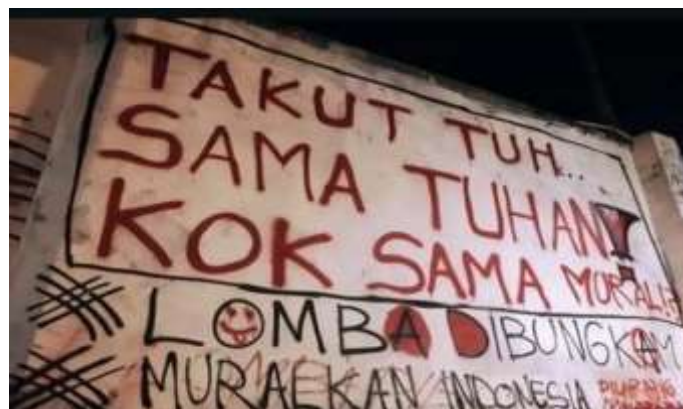 TAKUT TUH...
SAMA TUHAN!
KOK SAMA MURAL!?
LOMBA DIBUNGKAM
MURALKAN INDONESIA
DILARANG